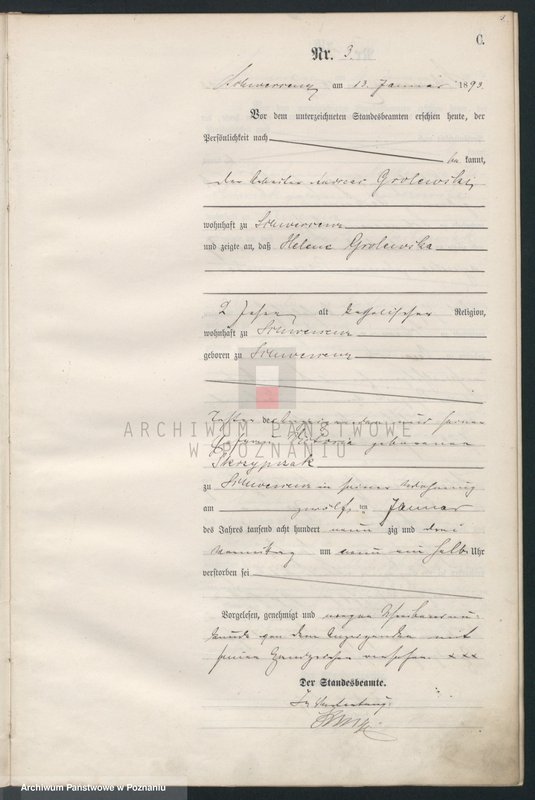 C.
Nr. 3.
Schwersenz am 13. Januar 1893.
Vor dem unterzeichneten Standesbeamten erschien heute, der
Persönlichkeit nach
be kannt,
der Arbeiter Andreas Grolewski,
wohnhaft zu Schwersenz
und zeigte an, daß Helene Grolewska
2 Jahre alt katholischer Religion,
wohnhaft zu Schwersenz
geboren zu Schwersenz
Tochter des Anzeigenden und seiner
Ehefrau Viktoria geborenen
Skrzypczak
zu Schwersenz in seiner Wohnung
am zwölften Januar
des Jahres tausend acht hundert neun zig und drei
Vormittag um neun ein halb Uhr
verstorben sei
Vorgelesen, genehmigt und wegen Schreibensun-
kunde von dem Anzeigenden mit
seinen Handzeichen versehen. xxx
Der Standesbeamte.
In Vertretung:
ARCHIWUM PAŃSTWOWE
W POZNANIU
Archiwum Państwowe w Poznaniu